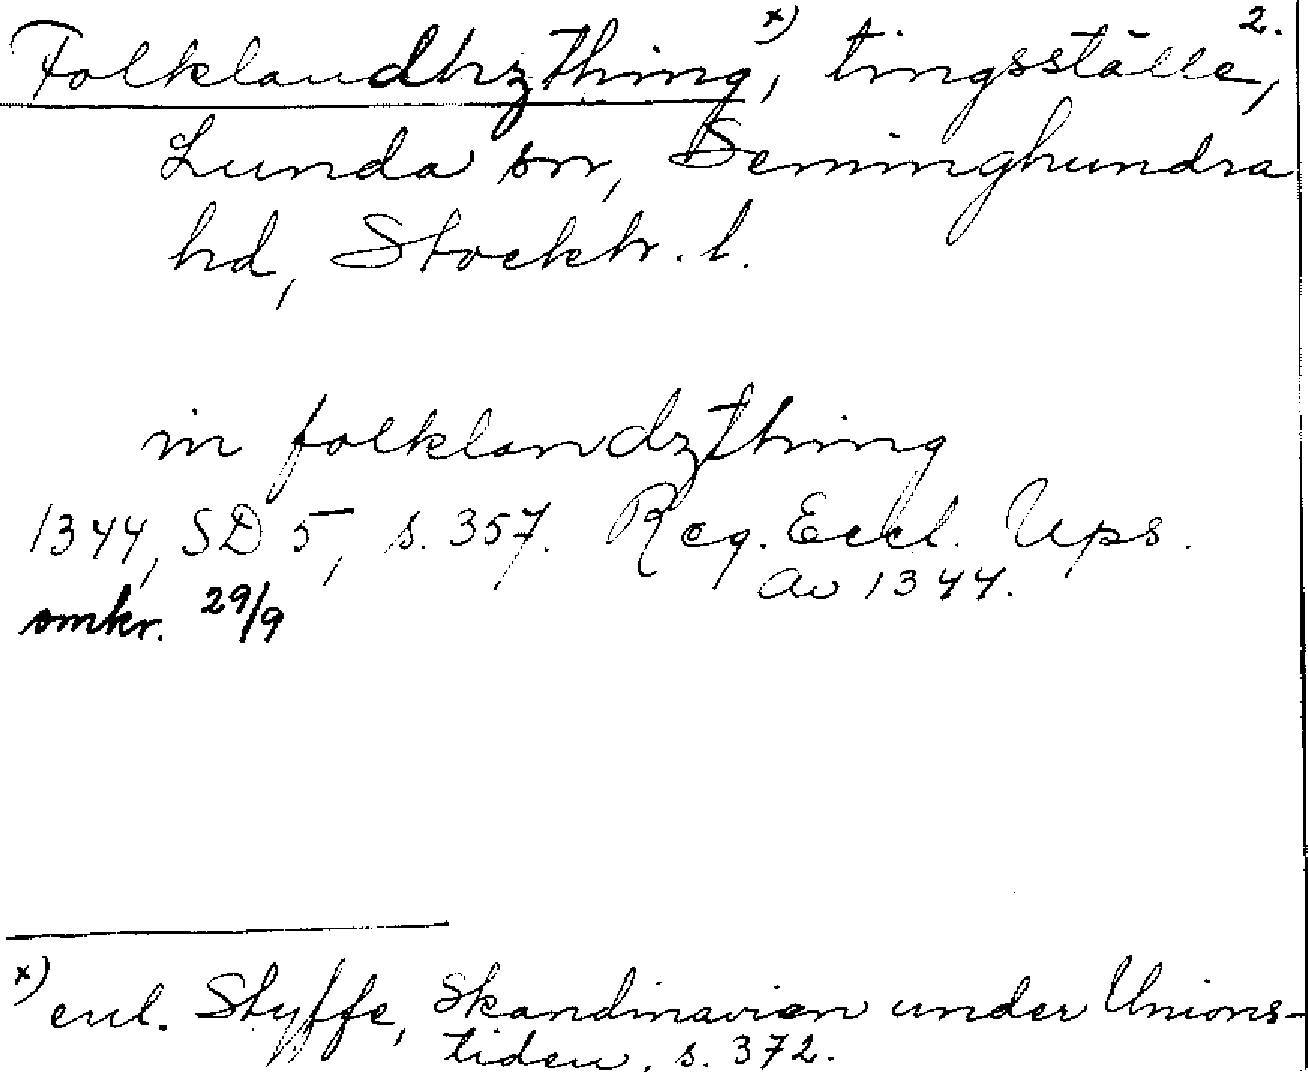 Folklandhzthing, x) tingsställe, 2.
Lunda sn, Seminghundra
hd, Stockh. l.
in folklandzthing
1344, SD 5, s. 357. Reg. Eccl. Ups.
av 1344.
omkr. 29/9
x) enl. Styffe, Skandinavien under Unions-
tiden, s. 372.